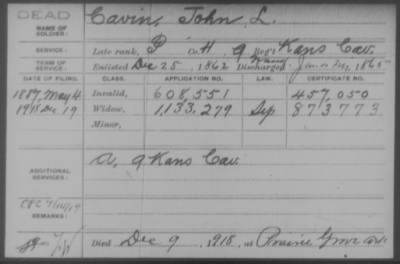 DEAD
NAME OF SOLDIER: Cavin, John L.
SERVICE: Late rank, P Co. H, 9 Reg't Kans Cav.
TERM OF SERVICE: Enlisted Dec 25, 1862 Discharged 1865
DATE OF FILING. CLASS. APPLICATION NO. LAW. CERTIFICATE NO.
1887, May 4 Invalid, 608,551 457,050
1918 Dec 19 Widow, 1,133,279 Sep 873773
Minor,
ADDITIONAL SERVICES: A, 9 Kans Cav.
REMARKS:
Died Dec 9, 1918, at Prairie Grove Ark.